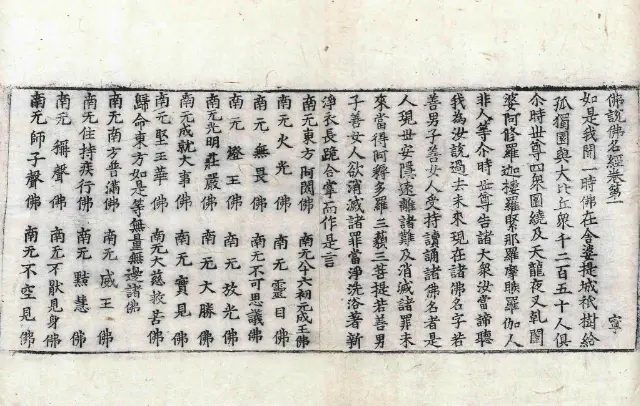 佛說佛名經卷第一 寧
如是我聞一時佛在舍婆提城祇樹給
孤獨園與大比丘衆千二百五十人俱
尒時世尊四衆圍繞及天龍夜叉乹闥
婆阿修羅迦樓羅緊那羅摩睺羅伽人
非人等尒時世尊告諸大衆汝當諦聽
我爲汝說過去未來現在諸佛名字若
善男子善女人受持讀誦諸佛名者是
人現世安隱遠離諸難及消滅諸罪未
來當得阿耨多羅三藐三菩提若善男
子善女人欲消滅諸罪當淨洗浴著新
淨衣長跪合掌而作是言
南无東方阿閦佛 南无成王佛
南无火光佛 南无靈目佛
南无無畏佛 南无不可思議佛
南无燈王佛 南无放光佛
南无光明莊嚴佛 南无大勝佛
南无成就大事佛 南无寶見佛
南无堅王華佛 南无大慈救苦佛
歸命東方如是等無量無邊諸佛
南无南方普滿佛 南无威王佛
南无住持疾行佛 南无黠慧佛
南无稱聲佛 南无不猒見身佛
南无師子聲佛 南无不空見佛